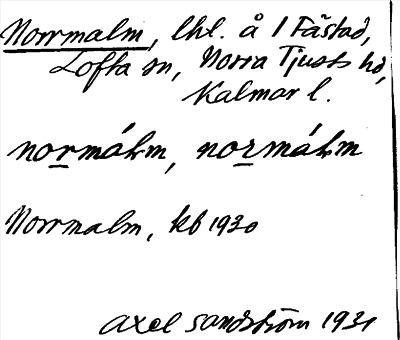 Norrmalm, lhl. å 1 Fästad,
Lofta sn, Norra Tjusts hd,
Kalmar l.
normáłm, normáłm
Norrmalm, kb 1930
Axel Sandström 1931